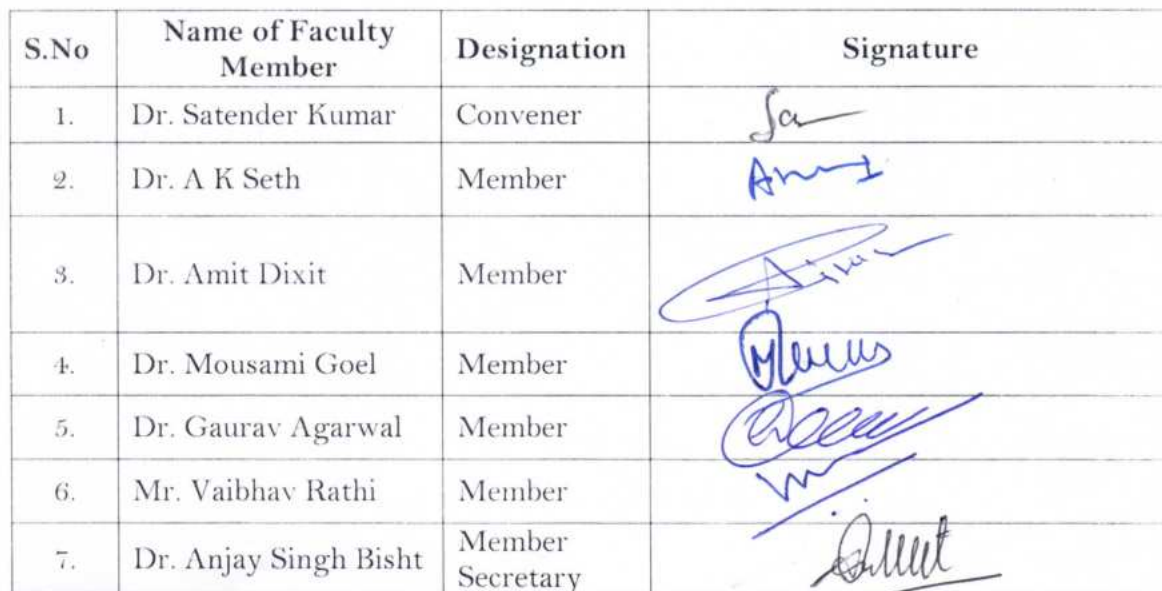 S.No Name of Faculty Member Designation Signature
1. Dr. Satender Kumar Convener
2. Dr. A K Seth Member
3. Dr. Amit Dixit Member
4. Dr. Mousami Goel Member
5. Dr. Gaurav Agarwal Member
6. Mr. Vaibhav Rathi Member
7. Dr. Anjay Singh Bisht Member Secretary